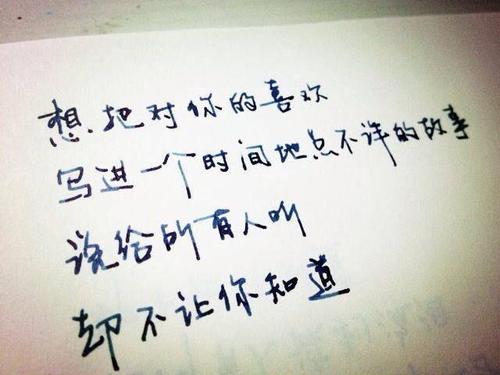 想把对你的喜欢
写进一个时间地点不详的故事
说给所有人听
却不让你知道